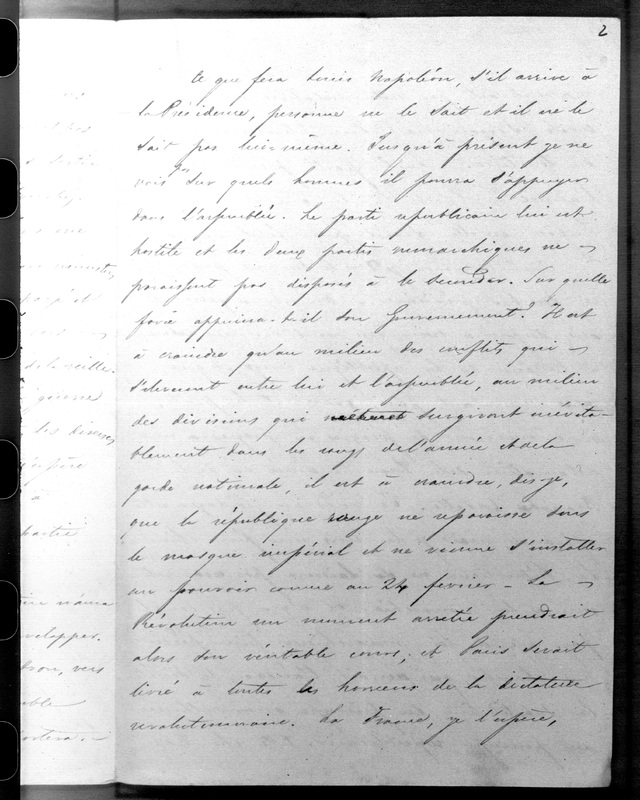 2
Ce que fera Louis Napoléon, s'il arrive à
la Présidence, personne ne le sait et il ne le
sait pas lui même. Jusqu'à présent je ne
vois pas sur quels hommes il pourra s'appuyer
dans l'assemblée. Le parti républicain lui est
hostile et les deux partis monarchiques ne
paraissent pas disposés à le seconder. Sur quelle
force appuiera-t-il son Gouvernement? Il est
à craindre qu'au milieu des conflits qui
s'élèveront entre lui et l'assemblée, au milieu
des divisions qui surgiront inévita-
blement dans les rangs de l'armée et de la
garde nationale, il est à craindre, dis-je,
que la république rouge ne reparaisse sous
le masque impérial et ne vienne s'installer
au pouvoir comme au 24 février - La
Révolution un moment arrêtée prendrait
alors son véritable cours, et Paris serait
livré à toutes les horreurs de la dictature
révolutionnaire. La France, je l'espère,
de la veille.
les diverses
velopper.